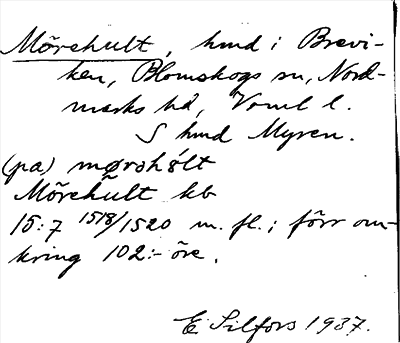 Mörehult, hmd i Brevi-
ken, Blomskogs sn, Nord-
marks hd, Vrml l.
S hmd Myren.
(pa) mørəhølt
Mörehult kb
15:7 1518/1520 m. fl.; förr om-
kring 102:- öre.
E Silfors 1937.